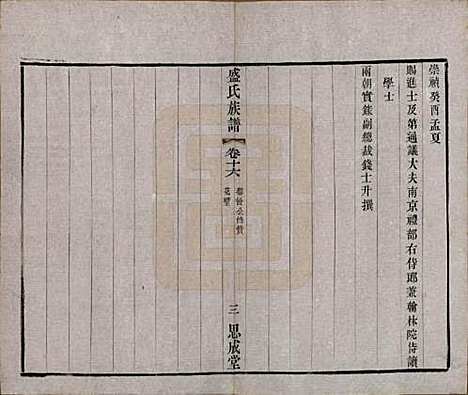 崇禎癸酉孟夏
賜進士及第通議大夫南京禮部右侍郎兼翰林院侍讀
學士
兩朝實錄副總裁錢士升撰
盛氏族譜
卷十六
三
思成堂